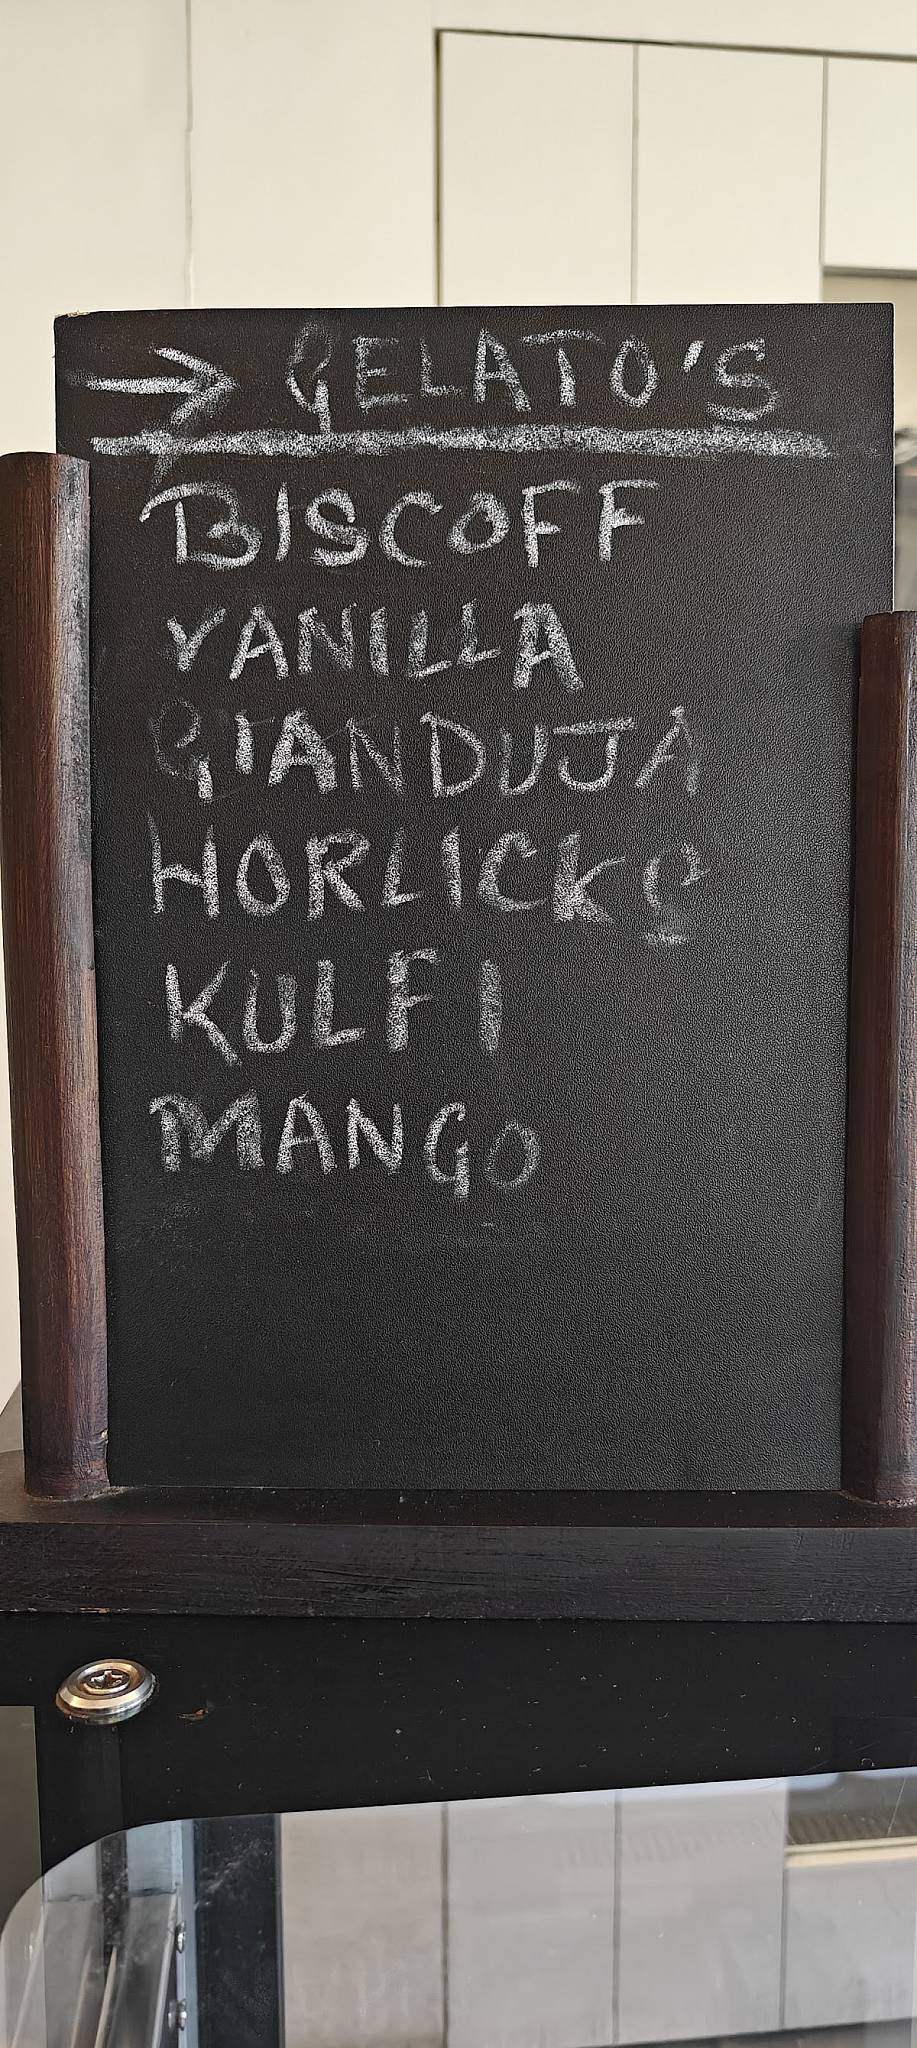 → GELATO'S
BISCOFF
VANILLA
GIANDUJA
HORLICKS
KULFI
MANGO